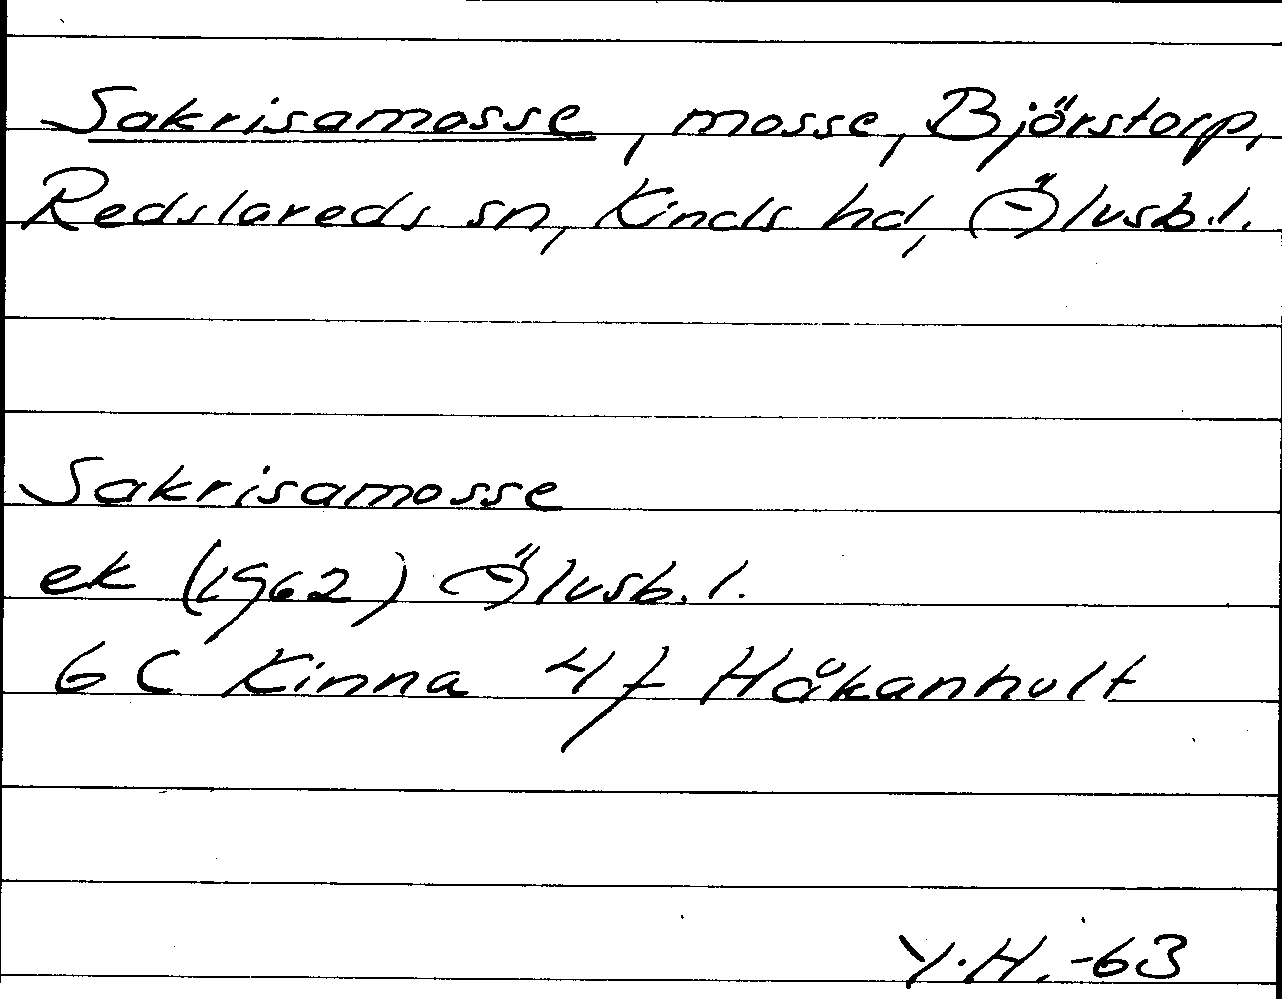 Sakrisamosse, mosse, Björstorp,
Redslareds sn, Kinds hd, Älvsb.l.
Sakrisamosse
ek (1962) Älvsb.l.
6C Kinna 4f Håkanhult
Y.H.-63